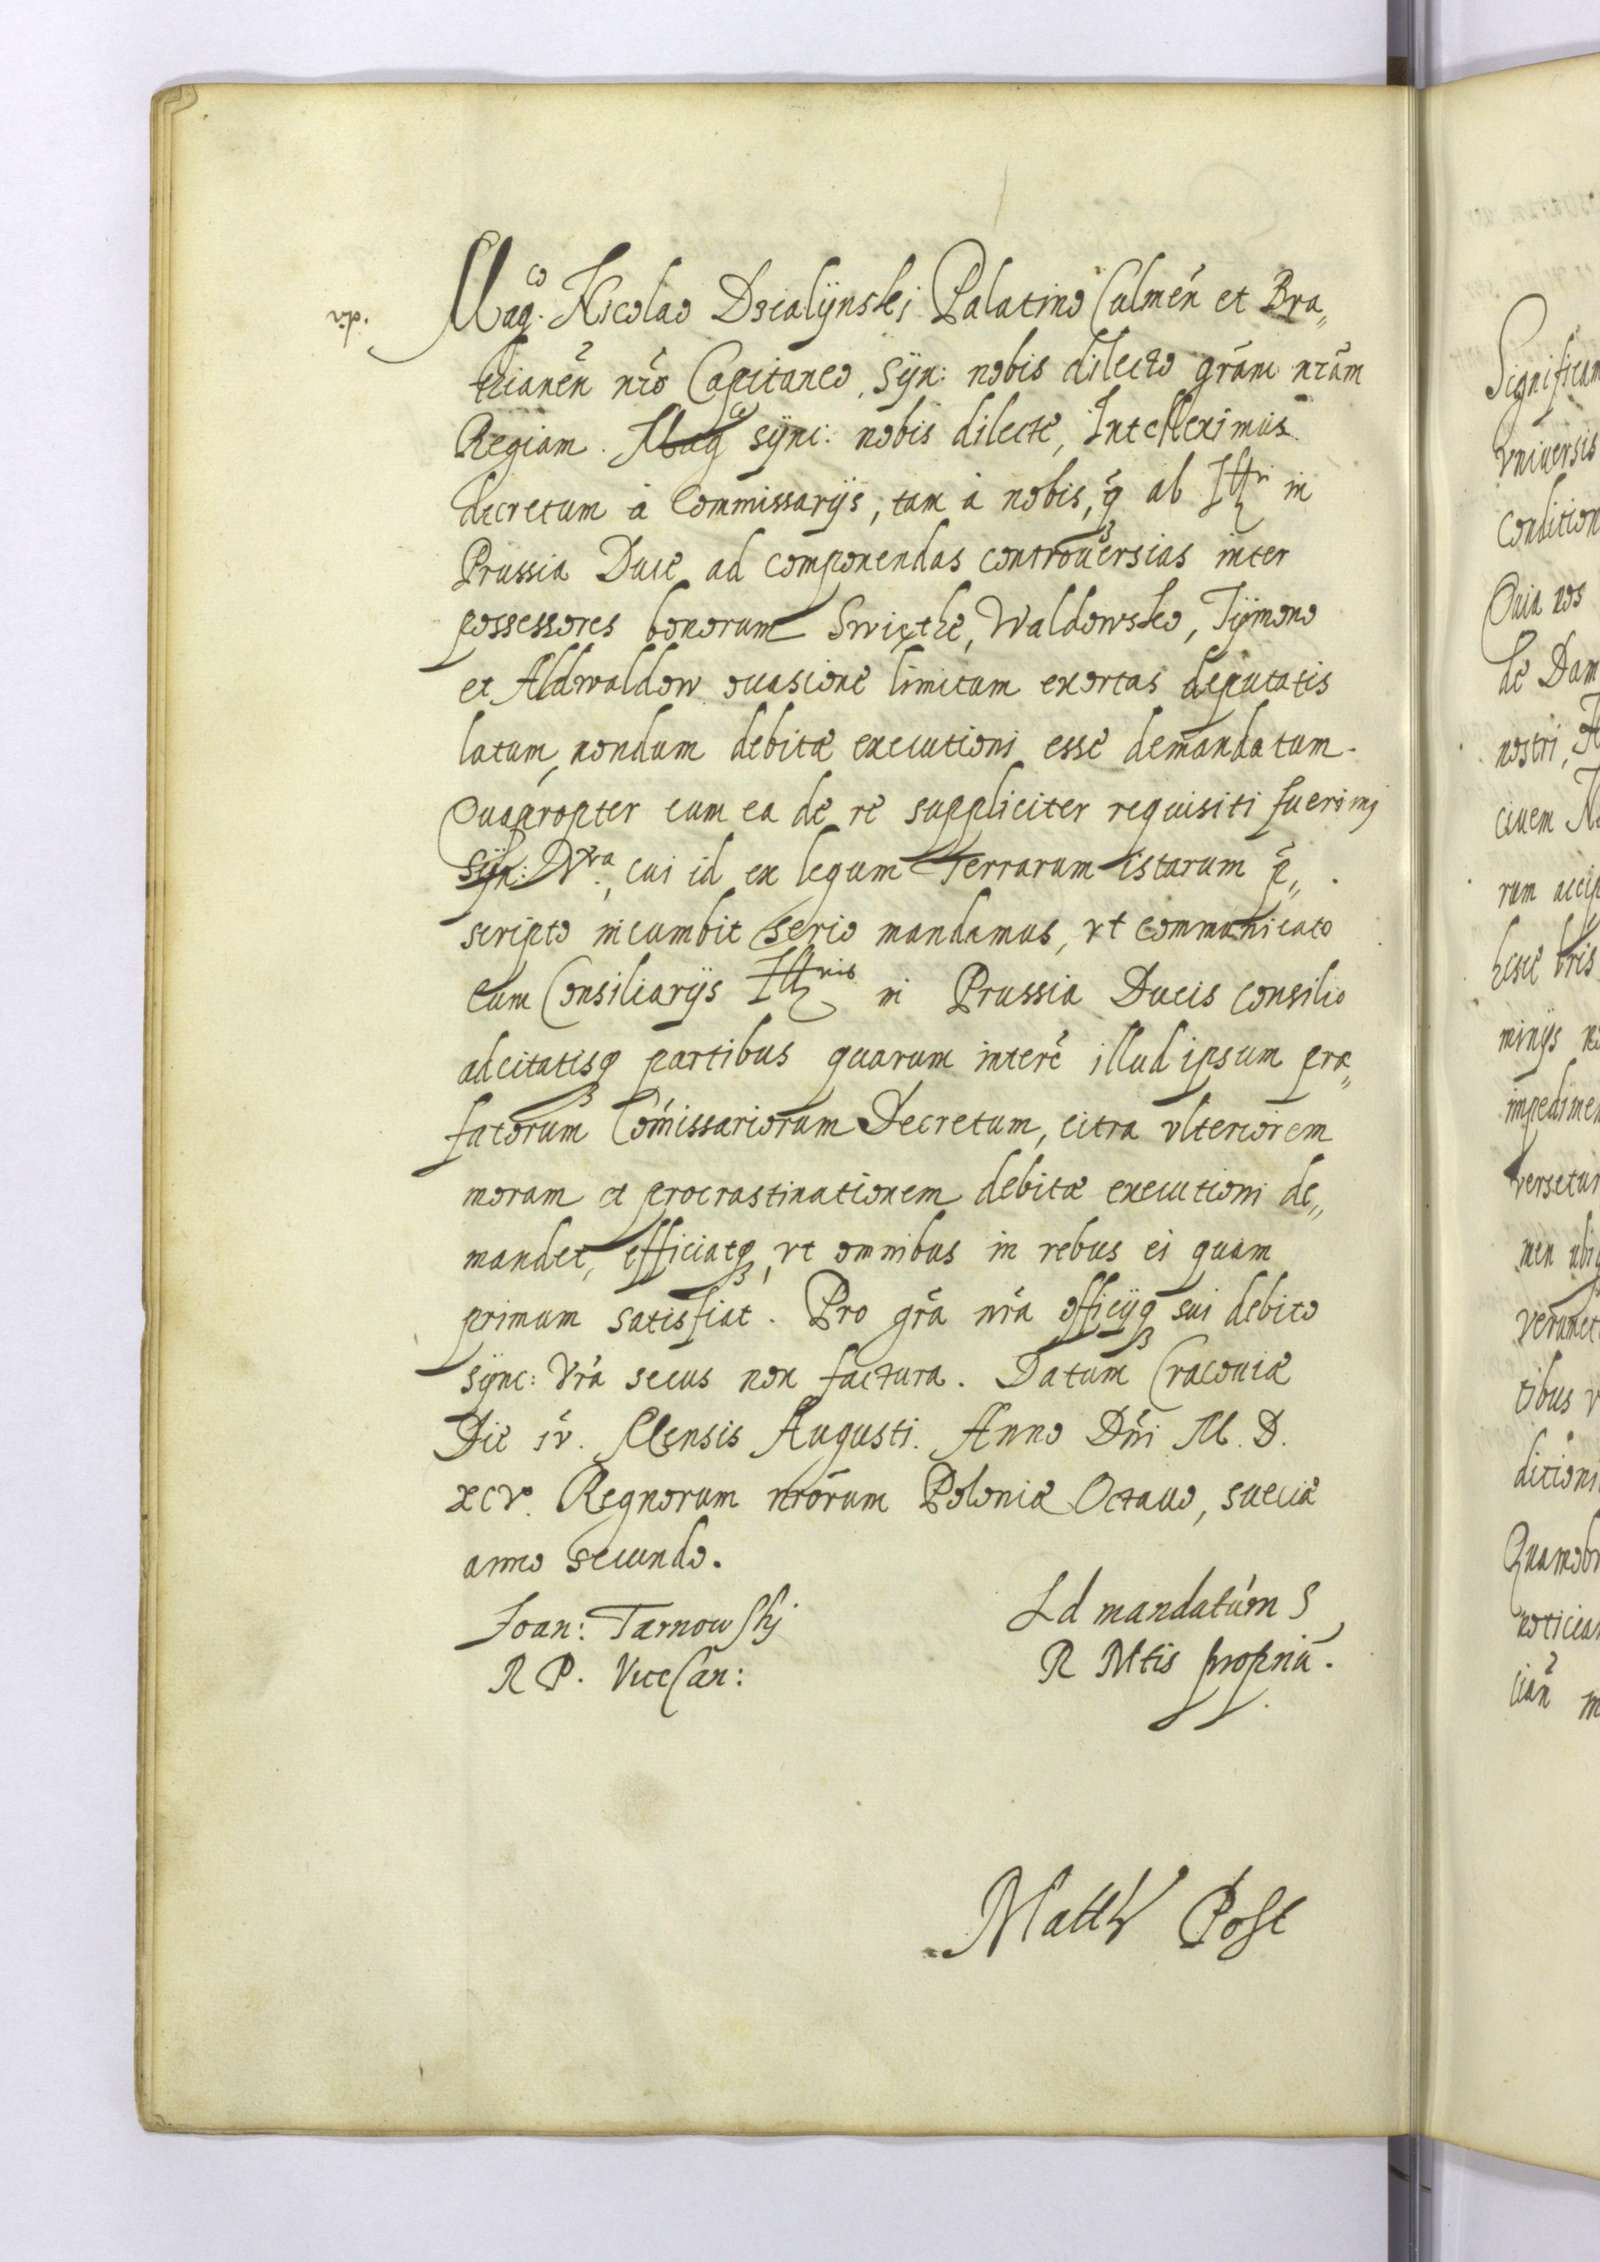 Mag.co Nicolao Dzialÿnskj Palatino Culmeñ et Bra„
thianeñ nrõ Capitaneo, sÿn: nobis dilecto grãm nrãm
Regiam. Magce sÿnc: nobis dilecte, Intelleximus
decretum à Commissarijs, tam à nobis, q̃ ab Illri in
Prussia Duce ad componendas controuersias inter
possessores bonorum Swięthe, Waldowsko, Tÿmono
et Aldwaldow occasione limitum exortas deputatis
latum, nondum debitæ executioni esse demandatum.
Quapropter cum ea de re suppliciter requisiti fuerimj
sÿn: Vra, cui id ex legum Terrarum istarum p̃„
scripto incumbit serio mandamus, vt communicato
cum Consiliarijs Illris in Prussia Ducis consilio
adcitatisq3 partibus quarum interẽ illud ipsum præ„
fatorum Com̃issariorum Decretum, citra vlteriorem
moram et procrastinationem debitæ executioni de„
mandet, efficiatq3, vt omnibus in rebus ei quam
primum satisfiat. Pro grã nrã officijq3 sui debito
sÿnc: Vrã secus non factura. Datum Cracouiæ
Die iv. Mensis Augusti. Anno Dñi M. D.
xcv. Regnorum nrõrum Poloniæ Octauo, sueciæ
anno secundo.
Joan: Tarnowskj
R P. ViceCan:
Ad mandatum S
R Mtis propriũ.
Matth Post
Significam
vniuersis
Condition
Quia nos
de Dam
nostri,
ciuem
rum accip
hesce lris
minijs
impedimen
versetur
men ubiq
verumet
tibus v
ditioni
Quamobr
noticiam